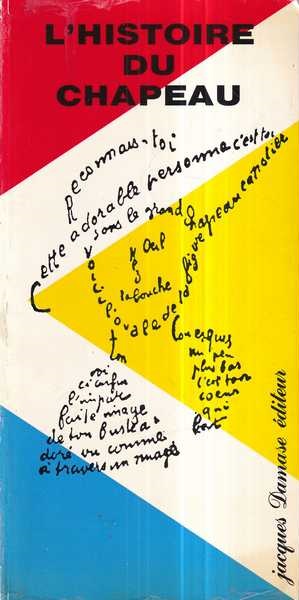 L'HISTOIRE
DU
CHAPEAU
Reconnais-toi
Cette adorable personne c'est toi
sous le grand chapeau canotier
Oeil
Nez
la bouche
Voici l'ovale de ta figure
ton
Cou
un peu
plus bas
c'est ton
coeur
qui
bat
ici enfin
l'impar
faite image
de ton buste a
doré vu comme
à travers un nuage
jacques Damase éditeur